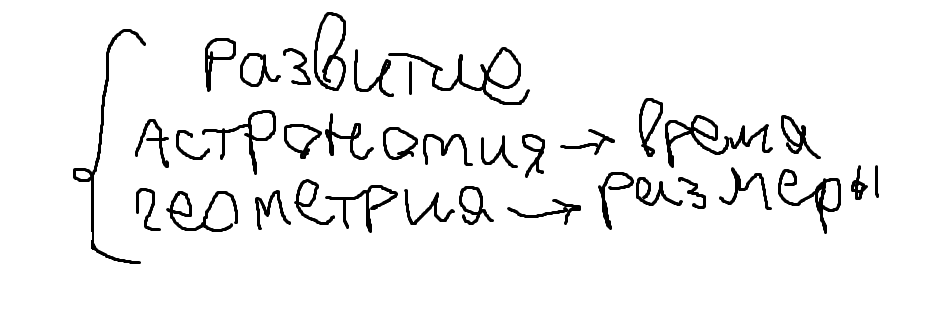 Развитие
Астрономия → время
геометрия → размеры